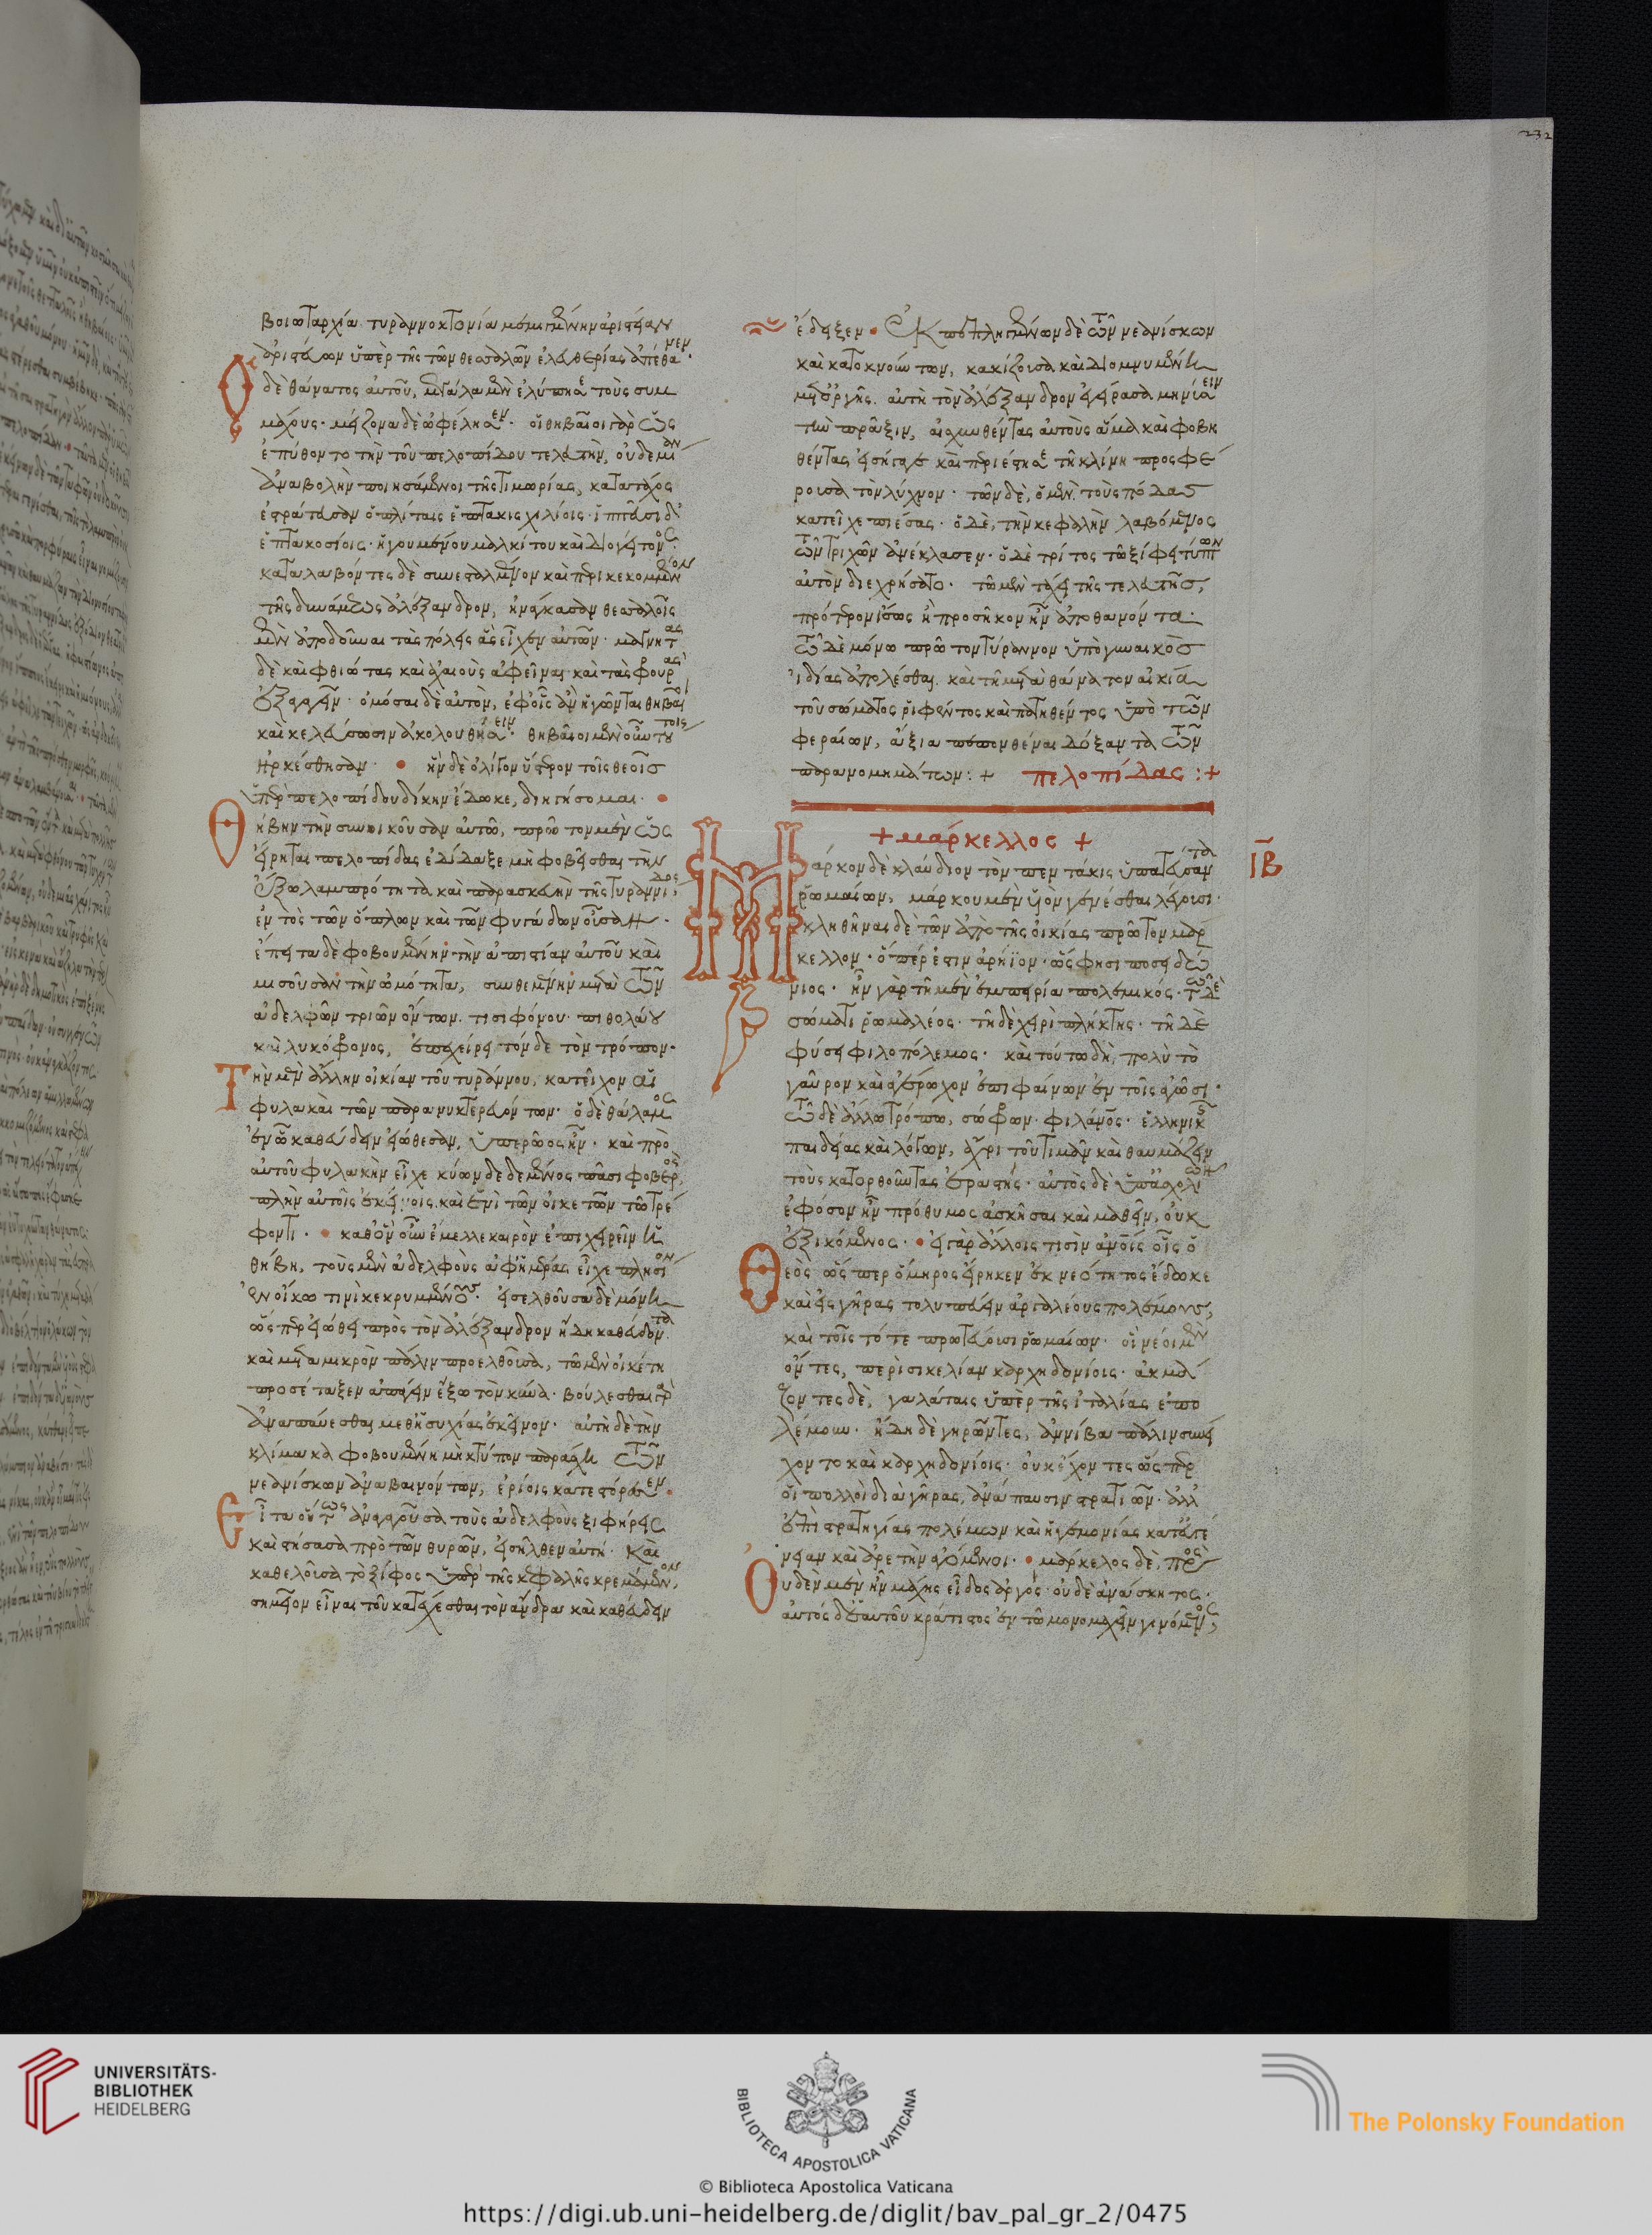 232
βοιωταρχία τυραννοκτονίαν μεμιγμένην ἀριστείαν
ἀριστεύων ὑπὲρ τῆς τῶν θεσσαλῶν ἐλευθερίας ἀπέθανεν·
Ὁ δὲ θάνατος αὐτοῦ, μεγάλα μὲν ἐλύπησε τοὺς συμ
μάχους· μείζονα δὲ ὠφέλησεν· οἱ θηβαῖοι γὰρ ὡς
ἐπύθοντο τὴν τοῦ πελοπίδου τελευτὴν, οὐδεμίαν
ἀναβολὴν ποιησάμενοι τῆς τιμωρίας, κατατάχος
ἐστράτευσαν ὁπλίταις ἑπτάκις χιλίοις· ἱππεῦσι δ'
ἑπτακοσίοις· ἡγουμένου μαλκίτου καὶ διογείτονος·
καταλαβόντες δὲ συνεσταλμένον καὶ περικεκομμένον
τῆς δυνάμεως ἀλέξανδρον, ἠνάγκασαν θεσσαλοῖς
μὲν ἀποδοῦναι τὰς πόλεις ἃς εἶχεν αὐτῶν· μάγνητας
δὲ καὶ φθιώτας καὶ ἀχαιοὺς ἀφεῖναι καὶ τὰς φρουρὰς
ἐξαγαγεῖν· ὀμόσαι δὲ αὐτὸν, ἐφοῖς ἂν ἡγῶνται θηβαῖοι
καὶ κελεύσωσιν ἀκολουθήσειν· θηβαῖοι μὲν οὖν τούτοις
ἠρκέσθησαν· ἣν δὲ ὀλίγον ὕστερον τοῖς θεοῖς
ὑπὲρ πελοπίδου δίκην ἔδωκε, διηγήσομαι·
Θήβην τὴν συνοικοῦσαν αὐτῶ, πρῶτον μὲν ὡς
εἴρηται πελοπίδας ἐδίδαξε μὴ φοβεῖσθαι τὴν
ἔξω λαμπρότητα καὶ παρασκευὴν τῆς τυραννίδος,
ἐντὸς τῶν ὅπλων καὶ τῶν φυγάδων οὖσαν·
ἔπειτα δὲ φοβουμένην τὴν ἀπιστίαν αὐτοῦ καὶ
μισοῦσαν τὴν ὠμότητα, συνθεμένην μετὰ τῶν
ἀδελφῶν τριῶν ὄντων· τισιφόνου· πιθολάου
καὶ λυκόφρονος, ἐπεχείρει τόνδε τὸν τρόπον·
Τὴν μὲν ἄλλην οἰκίαν τοῦ τυράννου, κατεῖχον αἱ
φυλακαὶ τῶν παρανυκτερευόντων· ὁ δὲ θάλαμος
ἐν ᾧ καθεύδειν εἰώθεσαν, ὑπερῶος ἦν· καὶ πρὸ
αὐτοῦ φυλακὴν εἶχε κύων δεδεμένος πᾶσι φοβερὸς,
πλὴν αὐτοῖς ἐκείνοις καὶ ἑνὶ τῶν οἰκετῶν τῶ τρέ
φοντι· καθ' ὃν οὖν ἔμελλε καιρὸν ἐπιχειρεῖν ἡ
θήβη, τοὺς μὲν ἀδελφοὺς ἀφ' ἡμέρας εἶχε πλησίον
ἐν οἴκω τινὶ κεκρυμμένους· εἰσελθοῦσα δὲ μόνη
ὥσπερ εἰώθει πρὸς τὸν ἀλέξανδρον ἤδη καθεύδοντα·
καὶ μετὰ μικρὸν πάλιν προελθοῦσα, τῶ μὲν οἰκέτη
προσέταξεν ἀπάγειν ἔξω τὸν κύνα· βούλεσθαι γὰρ
ἀναπαύεσθαι μεθ' ἡσυχίας ἐκεῖνον· αὐτὴ δὲ τὴν
κλίμακα φοβουμένη μὴ κτύπον παράσχη τῶν
νεανίσκων ἀναβαινόντων, ἐρίοις κατεστόρεσεν
Εἶτα οὕτως ἀναγαγοῦσα τοὺς ἀδελφοὺς ξιφήρεις
καὶ στήσασα πρὸ τῶν θυρῶν, εἰσῆλθεν αὐτή· καὶ
καθελοῦσα τὸ ξίφος ὑπὲρ τῆς κεφαλῆς κρεμάμενον,
σημεῖον εἶναι τοῦ κατέχεσθαι τὸν ἄνδρα καὶ καθεύδειν
ἔδειξεν· Ἐκπεπληγμένων δὲ τῶν νεανίσκων
καὶ κατοκνούντων, κακίζουσα καὶ διομνυμένη
μετ' ὀργῆς αὐτὴ τὸν ἀλέξανδρον ἐξεγείρασα μηνύσειν
τὴν πρᾶξιν, αἰσχυνθέντας αὐτοὺς ἅμα καὶ φοβη
θέντας εἰσήγαγε καὶ περιέστησε τῆ κλίνη προσφέ
ρουσα τὸν λύχνον· τῶν δὲ, ὁ μὲν τοὺς πόδας
κατεῖχε πιέσας· ὁ δὲ, τὴν κεφαλὴν λαβόμενος
τῶν τριχῶν ἀνέκλασεν· ὁ δὲ τρίτος τῶ ξίφει τύπτων
αὐτὸν διεχρήσατο· τῶ μὲν τάχει τῆς τελευτῆς,
πρότερον ἴσως ἢ προσῆκον ἦν ἀποθανόντα·
τῶ δὲ μόνω πρώτον τύραννον ὑπὸ γυναικὸς
ἰδίας ἀπολέσθαι· καὶ τῆ μετὰ θάνατον αἰκία
τοῦ σώματος ῥιφέντος καὶ πατηθέντος ὑπὸ τῶν
φεραίων, ἄξια πεπονθέναι δόξαντα τῶν
παρανομημάτων :+ πελοπίδας :+
+ μάρκελλος +
ΙΒ
Μάρκον δὲ κλαύδιον τὸν πεντάκις ὑπατεύσαντα
ῥωμαίων, μάρκου μὲν υἱὸν γενέσθαι λέγουσι·
κληθῆναι δὲ τῶν ἀπὸ τῆς οἰκίας πρῶτον μάρ
κελλον· ὅπερ ἐστὶν ἀρήϊον· ὥς φησι ποσειδώ
νιος· ἦν γὰρ τῆ μὲν ἐμπειρία πολεμικός· τῶ δὲ
σώματι ῥωμαλέος· τῆ δὲ χειρὶ πλήκτης· τῆ δὲ
φύσει φιλοπόλεμος· καὶ τούτω δὴ, πολὺ τὸ
γαῦρον καὶ ἀγέρωχον ἐπιφαίνων ἐν τοῖς ἀγῶσι·
τῶ δὲ ἄλλω τρόπω, σώφρων· φιλάνθρωπος· ἑλληνικῆς
παιδείας καὶ λόγων, ἄχρι τοῦ τιμᾶν καὶ θαυμάζειν
τοὺς κατορθοῦντας ἐραστής· αὐτὸς δὲ ὑπ' ἀσχολιῶν
ἐφόσον ἦν πρόθυμος ἀσκῆσαι καὶ μαθεῖν, οὐκ
ἐξικόμενος· εἰ γὰρ ἄλλοις τισὶν ἀνθρώποις οἷς ὁ
Θεὸς ὥσπερ ὅμηρος εἴρηκεν ἐκ νεότητος ἔδωκε
καὶ εἰς γῆρας τολυπεύειν ἀργαλέους πολέμους,
καὶ τοῖς τότε πρωτεύουσι ῥωμαίων· οἳ νέοι μὲν
ὄντες, περὶ σικελίαν καρχηδονίοις· ἀκμά
ζοντες δὲ, γαλάταις ὑπὲρ τῆς ἰταλίας ἐπο
λέμουν· ἤδη δὲ γηρῶντες, ἀννίβα πάλιν συνεί
χοντο καὶ καρχηδονίοις· οὐκ ἔχοντες ὥσπερ
οἱ πολλοὶ διὰ γῆρας, ἀνάπαυσιν στρατιῶν· ἀλλ'
ἐπὶ στρατηγίας πολέμων καὶ ἡγεμονίας κατ' εὐγέ
νειαν καὶ ἀρετὴν ἀγόμενοι· μάρκελος δὲ, πρὸς
Οὐδὲν μὲν ἦν μάχης εἶδος ἀργός· οὐδὲ ἀνάσκητος·
αὐτός δ' ἑαυτοῦ κράτιστος ἐν τῶ μονομαχεῖν γενόμενος,
UNIVERSITÄTS-
BIBLIOTHEK
HEIDELBERG
BIBLIOTECA APOSTOLICA VATICANA
The Polonsky Foundation
© Biblioteca Apostolica Vaticana
https://digi.ub.uni-heidelberg.de/diglit/bav_pal_gr_2/0475